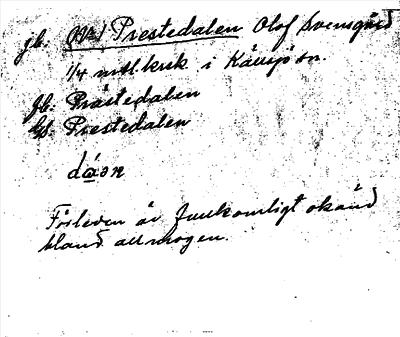 jb. Prestedalen Olof Svensgård
1/4 mtl. krk i
Jb. Prästedalen
Kf. Prestedalen
dáɔn
Försleden är fullkomligt okänd
bland allmogen.